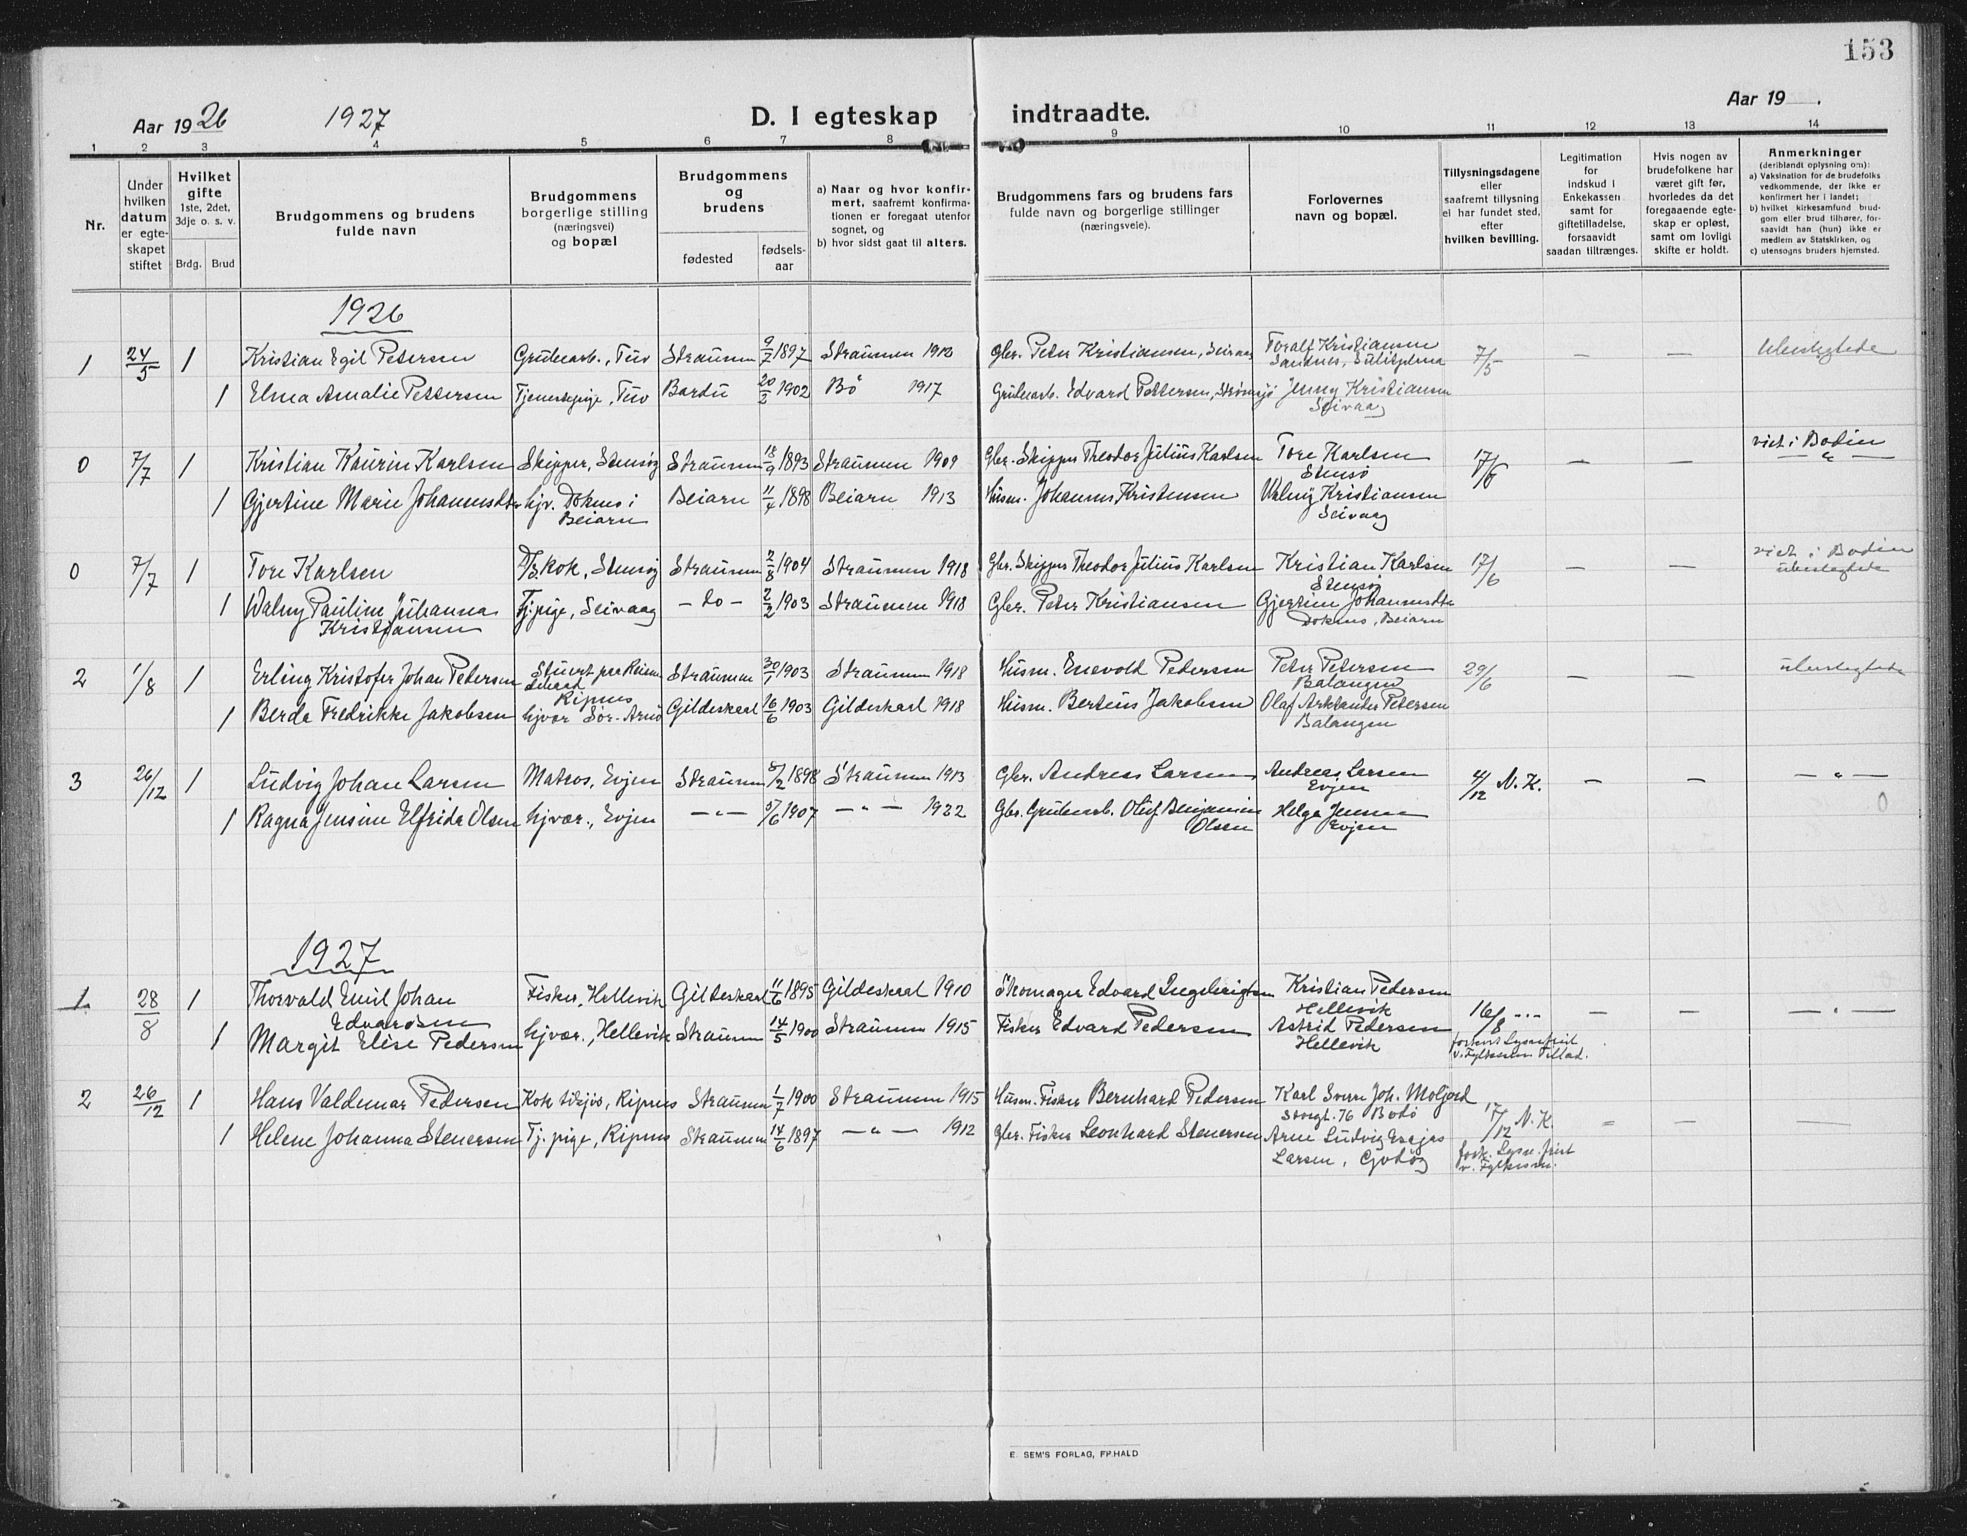 153
Aar 1926 1927 D. I egteskap indtraadte. Aar 19 .
1 2 3 4 5 6 7 8 9 10 11 12 13 14
Nr.
Under hvilken datum er egte- skapet stiftet
Hvilket gifte 1ste, 2det, 3dje o. s. v.
Brdg. Brud
Brudgommens og brudens fulde navn
Brudgommens borgerlige stilling (næringsvei) og bopæl
Brudgommens og brudens
fødested fødsels- aar
a) Naar og hvor konfir- mert, saafremt konfirma- tionen er foregaat utenfor sognet, og
b) hvor sidst gaat til alters.
Brudgommens fars og brudens fars fulde navn og borgerlige stillinger (næringsveie).
Forlovernes navn og bopæl.
Tillysningsdagene eller saafremt tillysning ei har fundet sted, efter hvilken bevilling.
Legitimation for indskud i Enkekassen samt for giftetilladelse, forsaavidt saadan tiltrænges.
Hvis nogen av brudefolkene har været gift før, hvorledes da det foregaaende egte- skap er opløst, samt om lovlig skifte er holdt.
Anmerkninger (deriblandt oplysning om): a) Vaksination for de brudefolks vedkommende, der ikke er konfirmert her i landet; b) hvilket kirkesamfund brud- gom eller brud tilhører, for- saavidt han (hun) ikke er medlem av Statskirken, og c) utensogns bruders hjemsted.
1926
1 24/5 1 Kristian Egil Petersen Grubearb., Tuv Straumen 9/7 1897 Straumen 1912 Gbr. Peter Kristiansen, Seivaag Toralf Kristiansen Sandnes, Sulitjelma 7/5 — — Ubeslegtede
1 Elma Amalie Pettersen Tjenestepige, Tuv Bardu 20/2 1902 Bö 1917 Grubearb. Edvard Pettersen, Strømsjø Jenny Kristiansen Seivaag
0 7/7 1 Kristian Kaurin Karlsen Skipper, Stensø Straumen 18/9 1893 Straumen 1909 Gbr. Skipper Theodor Julius Karlsen Tore Karlsen Stensø 17/6 — — viet i Bodin — " —
1 Gjertine Marie Johannesdtr hjv. Dokmo i Beiarn Beiarn 11/4 1898 Beiarn 1913 Husm. Johannes Kristensen Walny Kristiansen Seivaag
0 7/7 1 Tore Karlsen D/S kok, Stensø Straumen 2/8 1904 Straumen 1918 Gbr. Skipper Theodor Julius Karlsen Kristian Karlsen Stensø 17/6 — — viet i Bodin ubeslegtede
1 Walny Pauline Juhanna Kristiansen Tj. pige, Seivaag — do — 2/2 1903 Straumen 1918 Gbr. Peter Kristiansen Gjertine Johannesdtr Dokmo, Beiarn
2 1/8 1 Erling Kristofer Johan Petersen Stuert paa Straumen 30/1 1903 Straumen 1918 Husm. Enevold Pedersen Peter Petersen Balangen 29/6 — — ubeslegtede
1 Berda Fredrikke Jakobsen hjvær Sør-Arnø Gildeskaal 16/6 1903 Gildeskaal 1918 Husm. Berteus Jakobsen Olaf Arktander Petersen Balangen
3 26/12 1 Ludvig Johan Larsen Matros, Evjen Straumen 8/2 1898 Straumen 1913 Gbr. Andreas Larsen Andreas Larsen Evjen 4/12 N. K. — — — " —
1 Ragna Jensine Elfrida Olsen hjvær., Evjen — " — 5/6 1907 — " — 1922 Gbr. Grubearb. Oluf Benjamin Olsen Helga Jensen Evjen 0
1927
1 28/8 1 Thorvald Emil Johan Edvardsen Fisker, Hellevik Gildeskaal 11/6 1895 Gildeskaal 1910 Skomager Edvard Ingebrigtsen Kristian Pedersen Hellevik 16/8 -"- — — — " —
1 Margit Elise Pedersen hjvær., Hellevik Straumen 14/5 1900 Straumen 1915 Fisker Edvard Pedersen Astrid Pedersen Hellevik
2 26/12 1 Hans Valdemar Pedersen Kok tilsjøs, Ripnes Straumen 1/7 1900 Straumen 1915 Husm. Fisker Bernhard Pedersen Karl Sverre Joh. Moljord Storgt. 76 Bodø 17/12 N. K. — — —
1 Helene Johanna Stenersen Tj. pige, Ripnes Straumen 14/6 1897 — " — 1912 Gbr. Fisker Leonhard Stenersen Arne Ludvig Esajas Larsen,
E. SEM'S FORLAG, FR.HALD